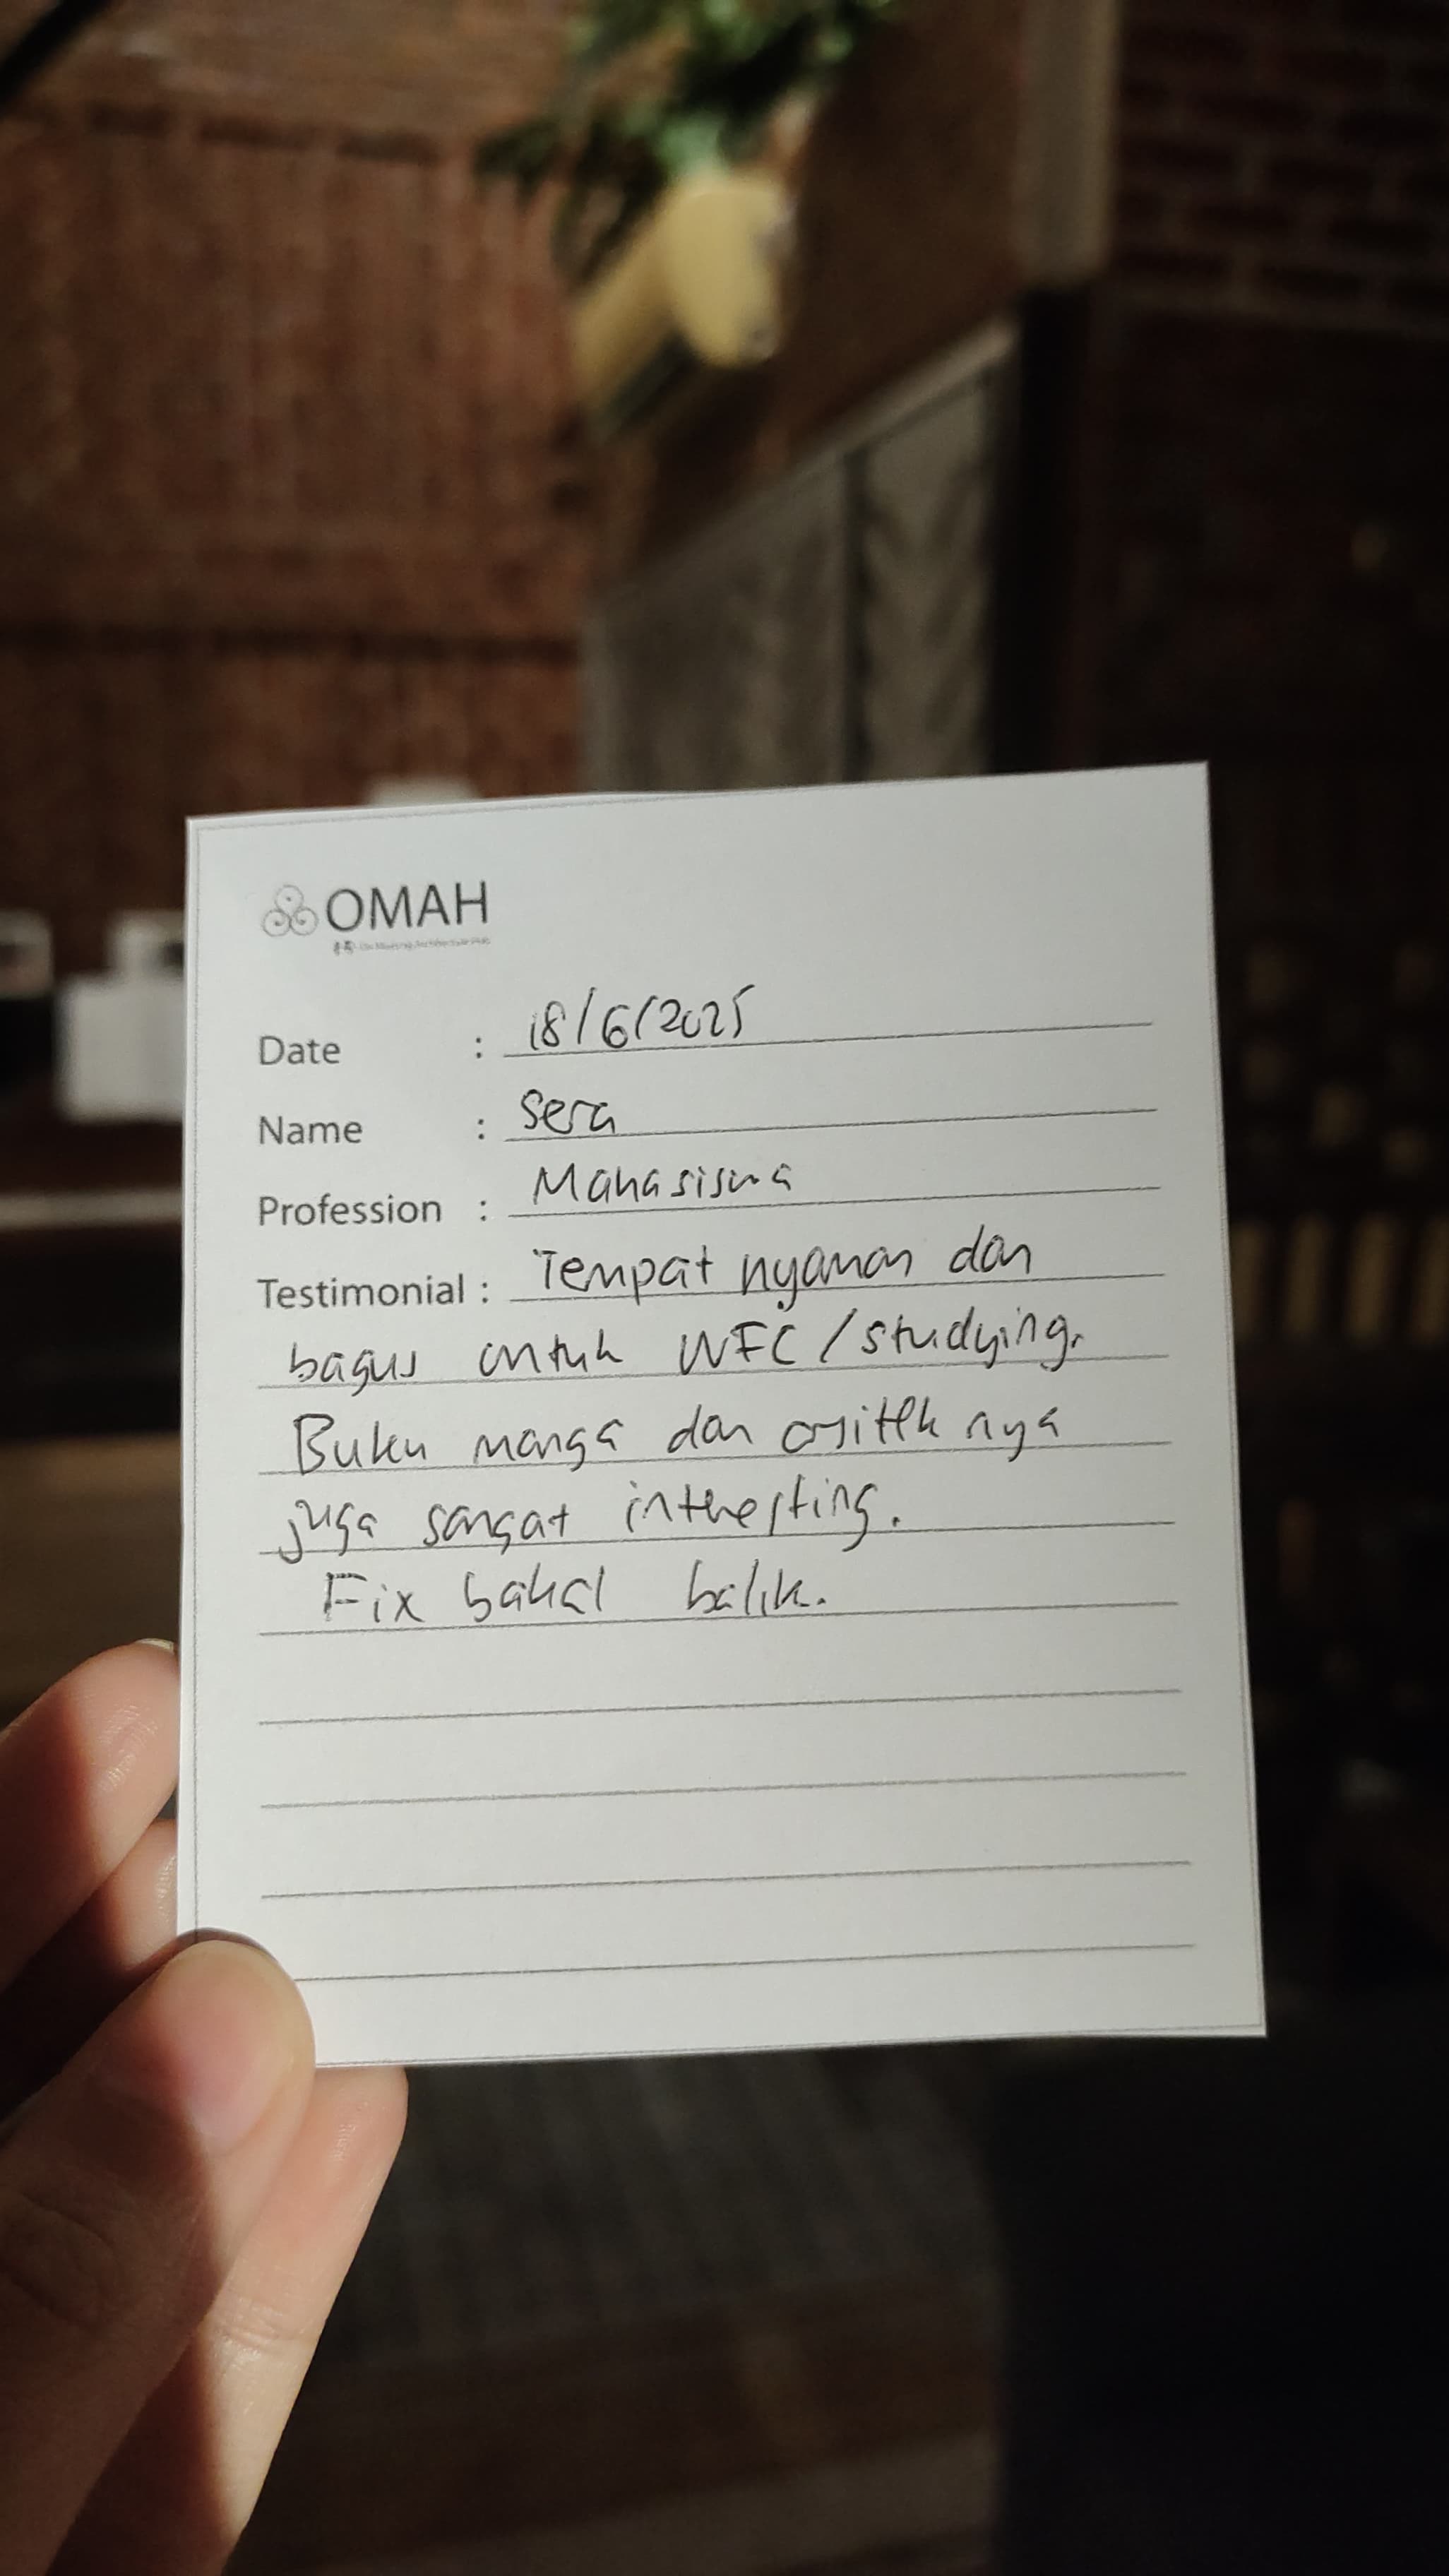 OMAH
Date : 18/6/2025
Name : Sera
Profession : Mahasiswa
Testimonial : Tempat nyaman dan
bagus untuk WFC/studying.
Buku manga dan arsitek nya
juga sangat interesting.
Fix bakal balik.